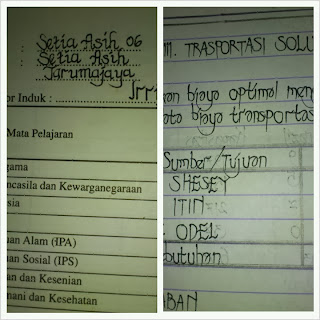 : Setia Asih 06
: Setia Asih
Tarumajaya
or Induk :
Mata Pelajaran
gama
ncasila dan Kewarganegaraan
sia
an Alam (IPA)
an Sosial (IPS)
an dan Kesenian
mani dan Kesehatan
III. TRASPORTASI SOLU
kan biaya optimal men
ata biaya transportas
Sumber/Tujuan
SHESEY
ITIN
ODEL
butuhan
ABAN